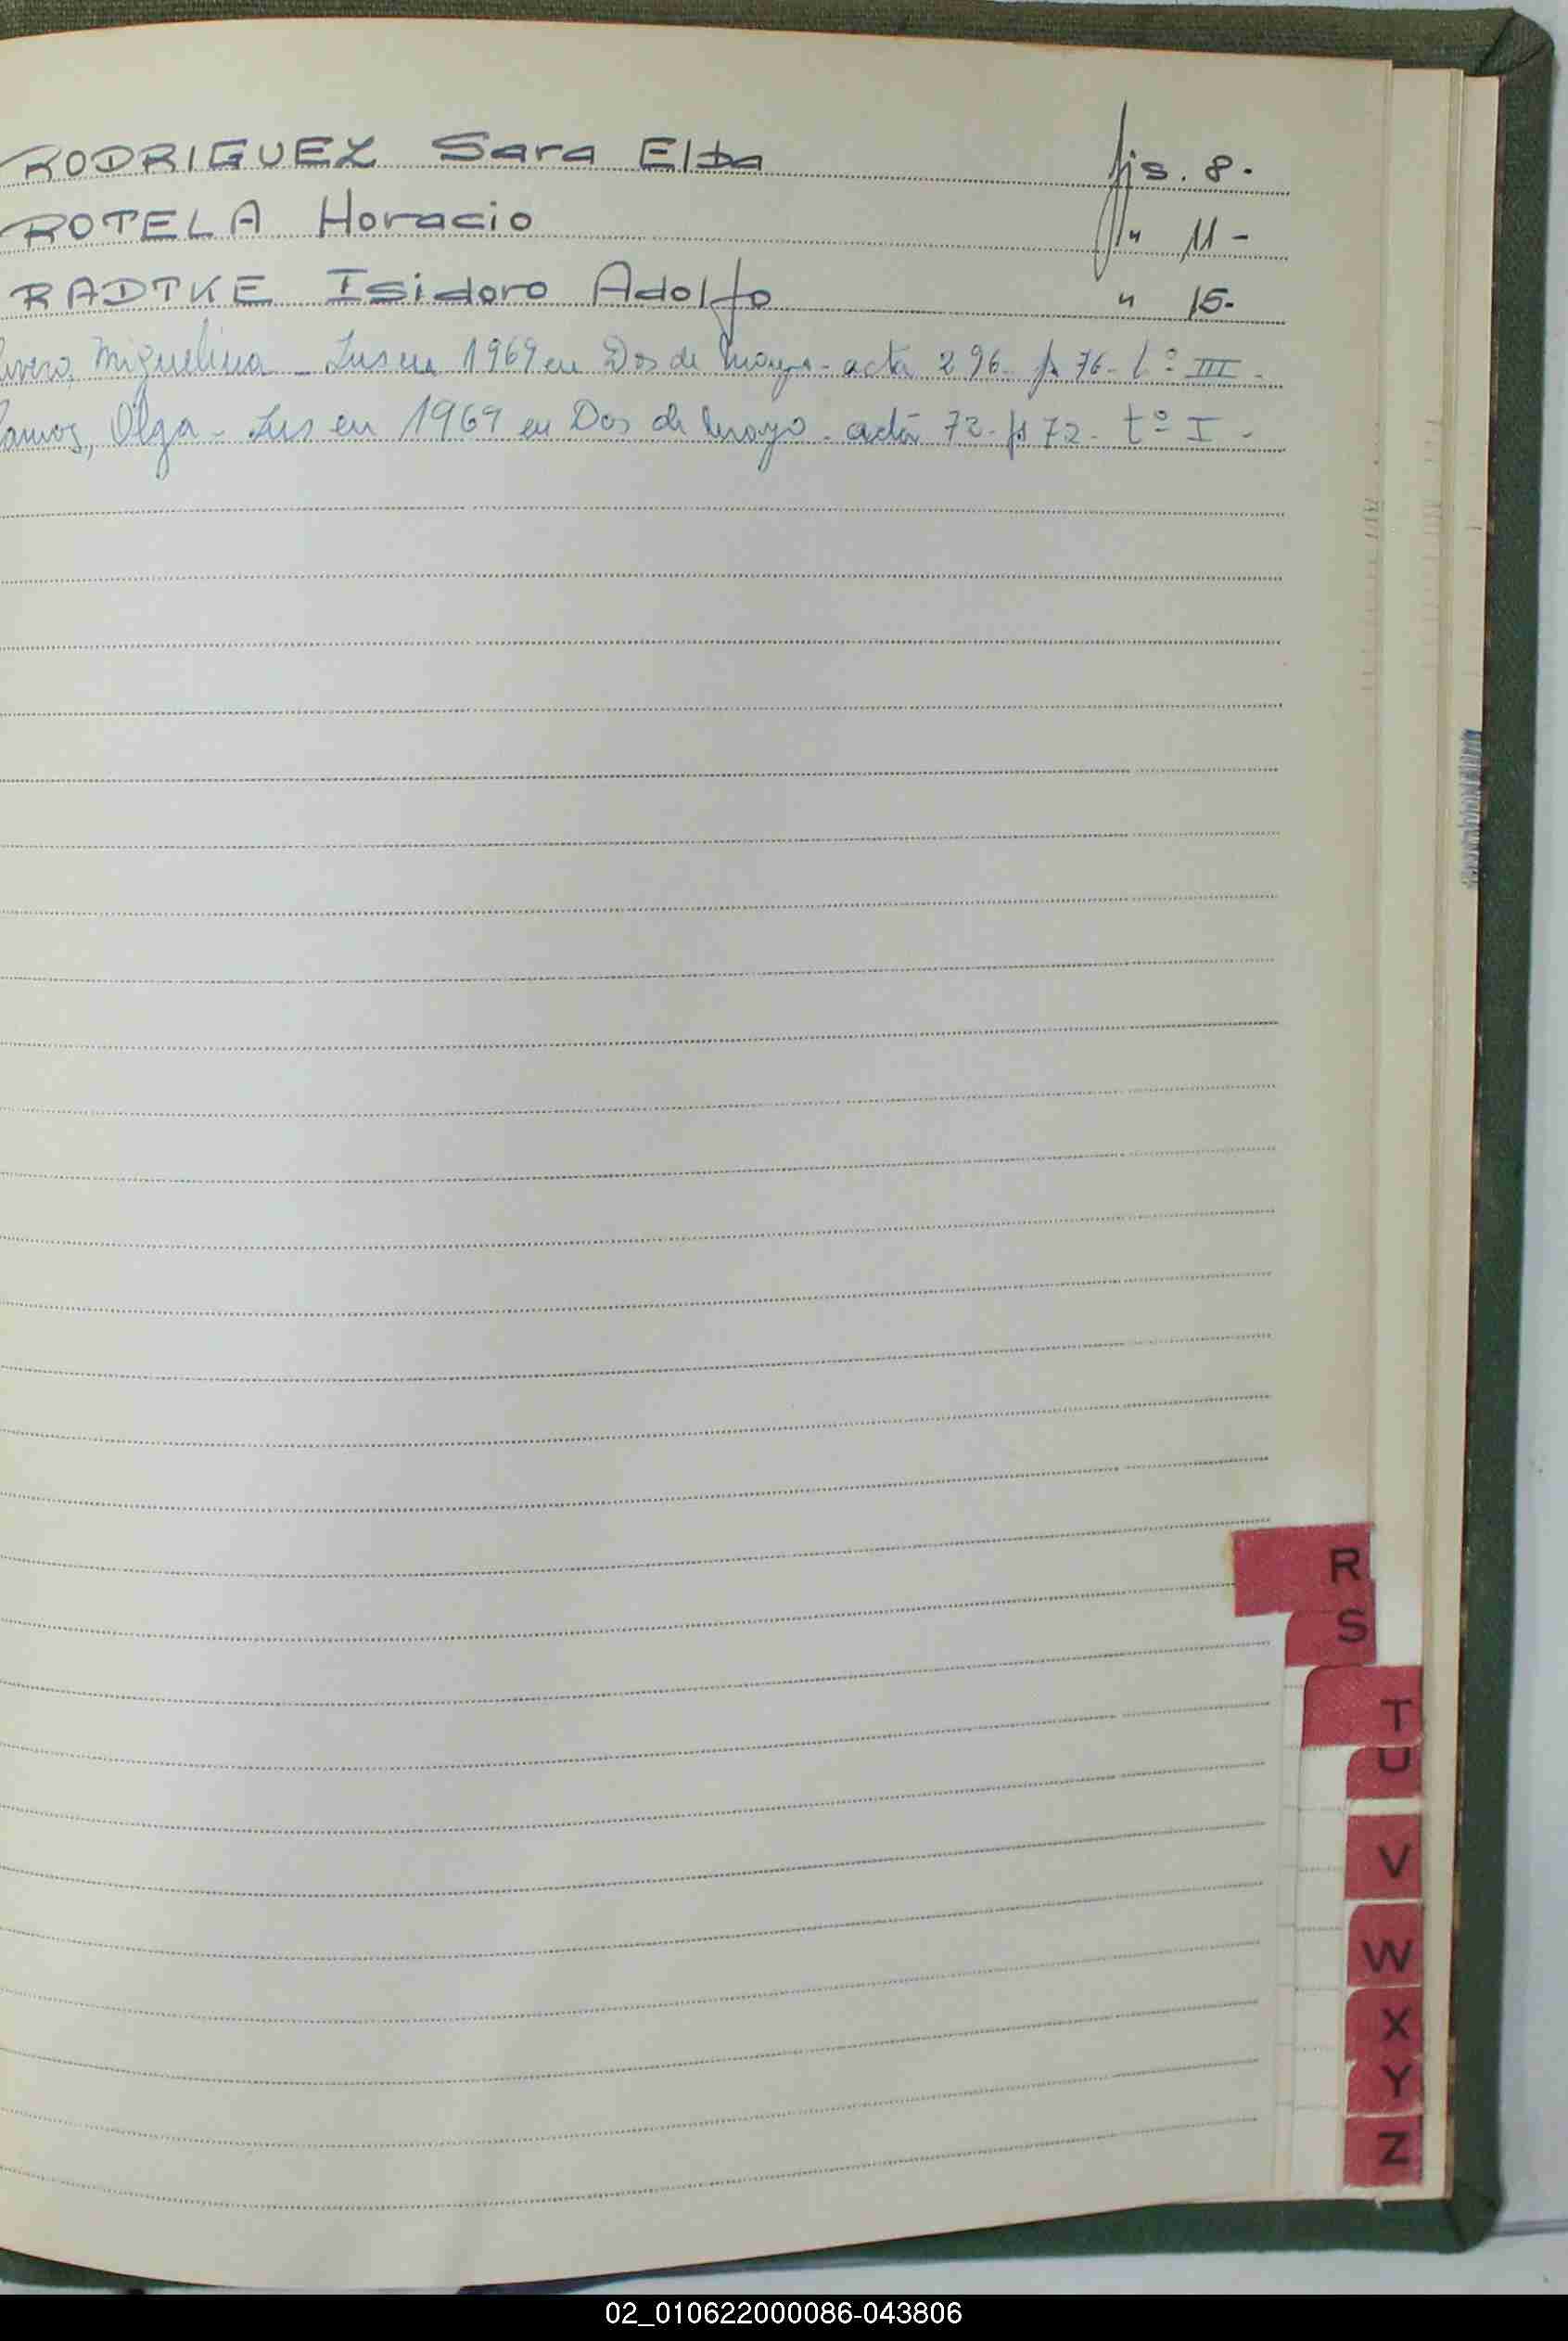 RODRIGUEZ Sara Elba fjs. 8.
ROTELA Horacio " 11 -
RADTKE Isidoro Adolfo " 15-
Miguelina - Ins en 1969 en Dos de Mayo - acta 296 - fs 76 - tº III -
Ramos, Olga - Ins en 1969 en Dos de Mayo - acta 72 - fs 72 - tº I -
R
S
T
U
V
W
X
Y
Z
02_010622000086-043806